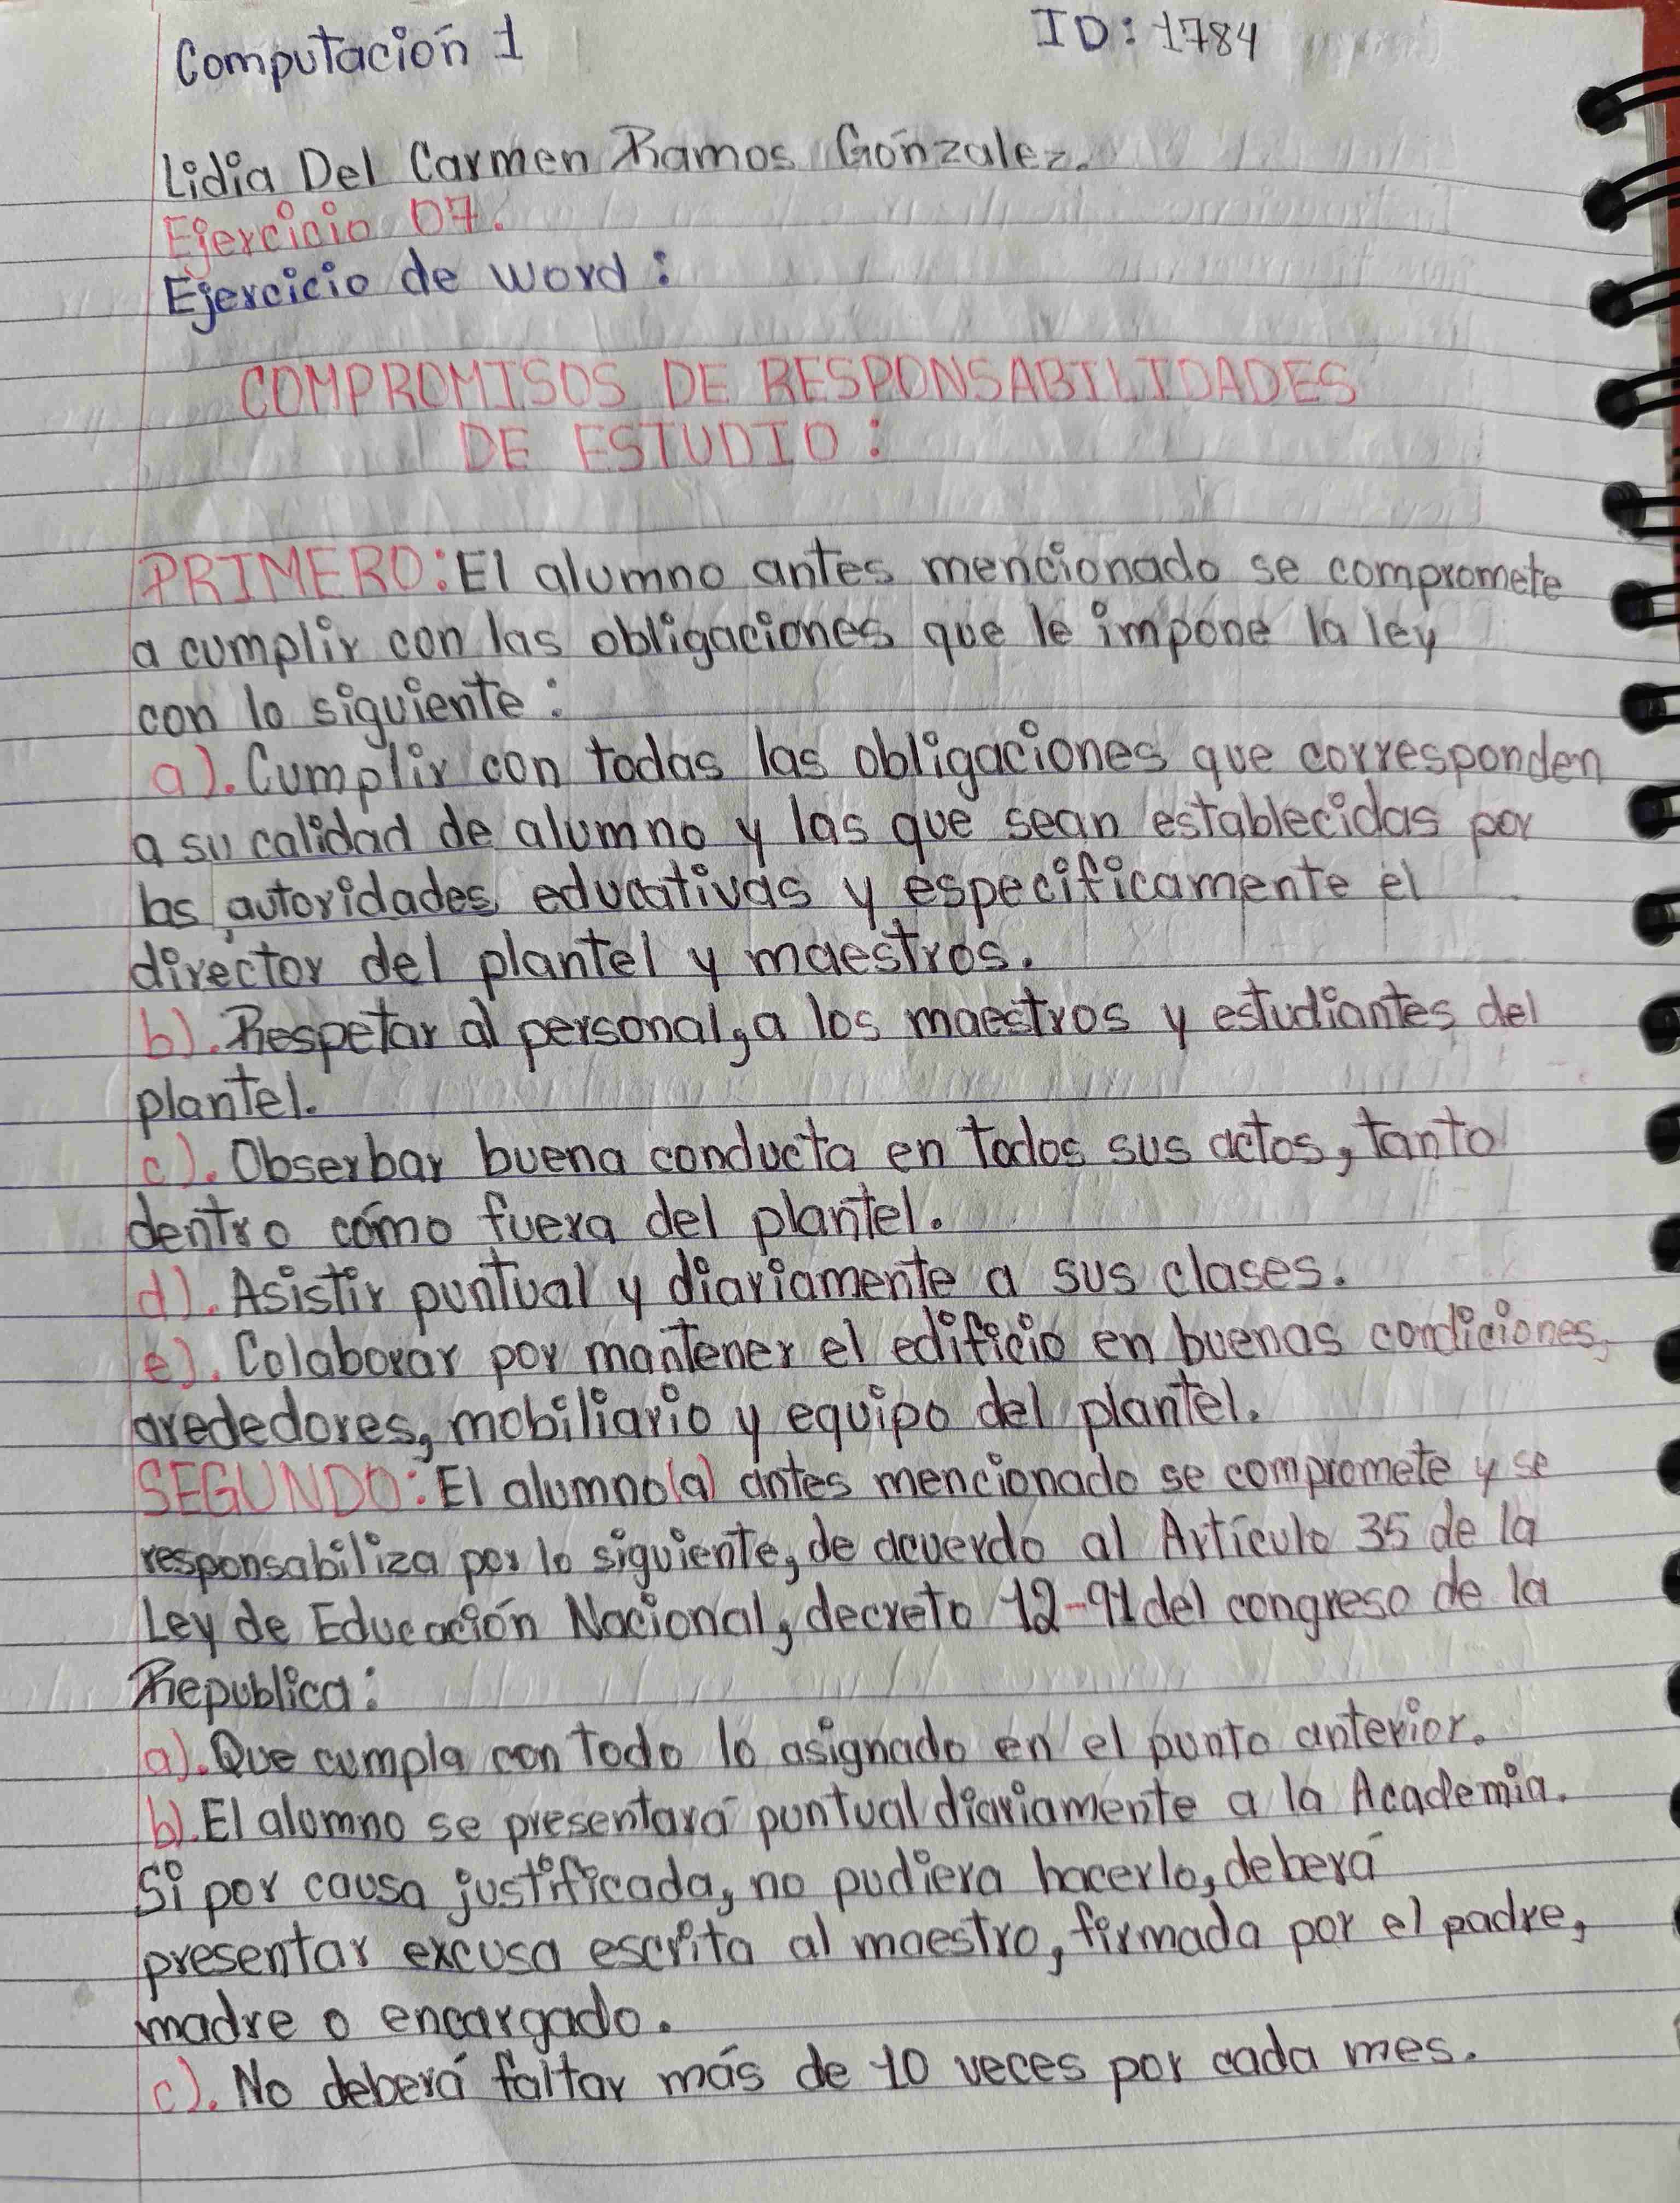 Computación 1
ID: 1784
Lidia Del Carmen Ramos Gónzalez.
Ejercicio 07.
Ejercicio de word:
COMPROMISOS DE RESPONSABILIDADES
DE ESTUDIO:
PRIMERO: El alumno antes mencionado se compromete
a cumplir con las obligaciones que le impone la ley
con lo siguiente:
a). Cumplir con todas las obligaciones que corresponden
a su calidad de alumno y las que sean establecidas por
las autoridades educativas y especificamente el
director del plantel y maestros.
b). Respetar al personal, a los maestros y estudiantes del
plantel.
c). Obserbar buena conducta en todos sus actos, tanto
dentro como fuera del plantel.
d). Asistir puntual y diariamente a sus clases.
e). Colaborar por mantener el edificio en buenas condiciones,
arededores, mobiliario y equipo del plantel.
SEGUNDO: El alumno(a) antes mencionado se compromete y se
responsabiliza por lo siguiente, de acuerdo al Artículo 35 de la
Ley de Educación Nacional, decreto 12-91 del congreso de la
Republica:
a). Que cumpla con todo lo asignado en el punto anterior.
b). El alumno se presentará puntual diariamente a la Academia.
Si por causa justificada, no pudiera hacerlo, deberá
presentar excusa escrita al maestro, firmada por el padre,
madre o encargado.
c). No deberá faltar más de 10 veces por cada mes.